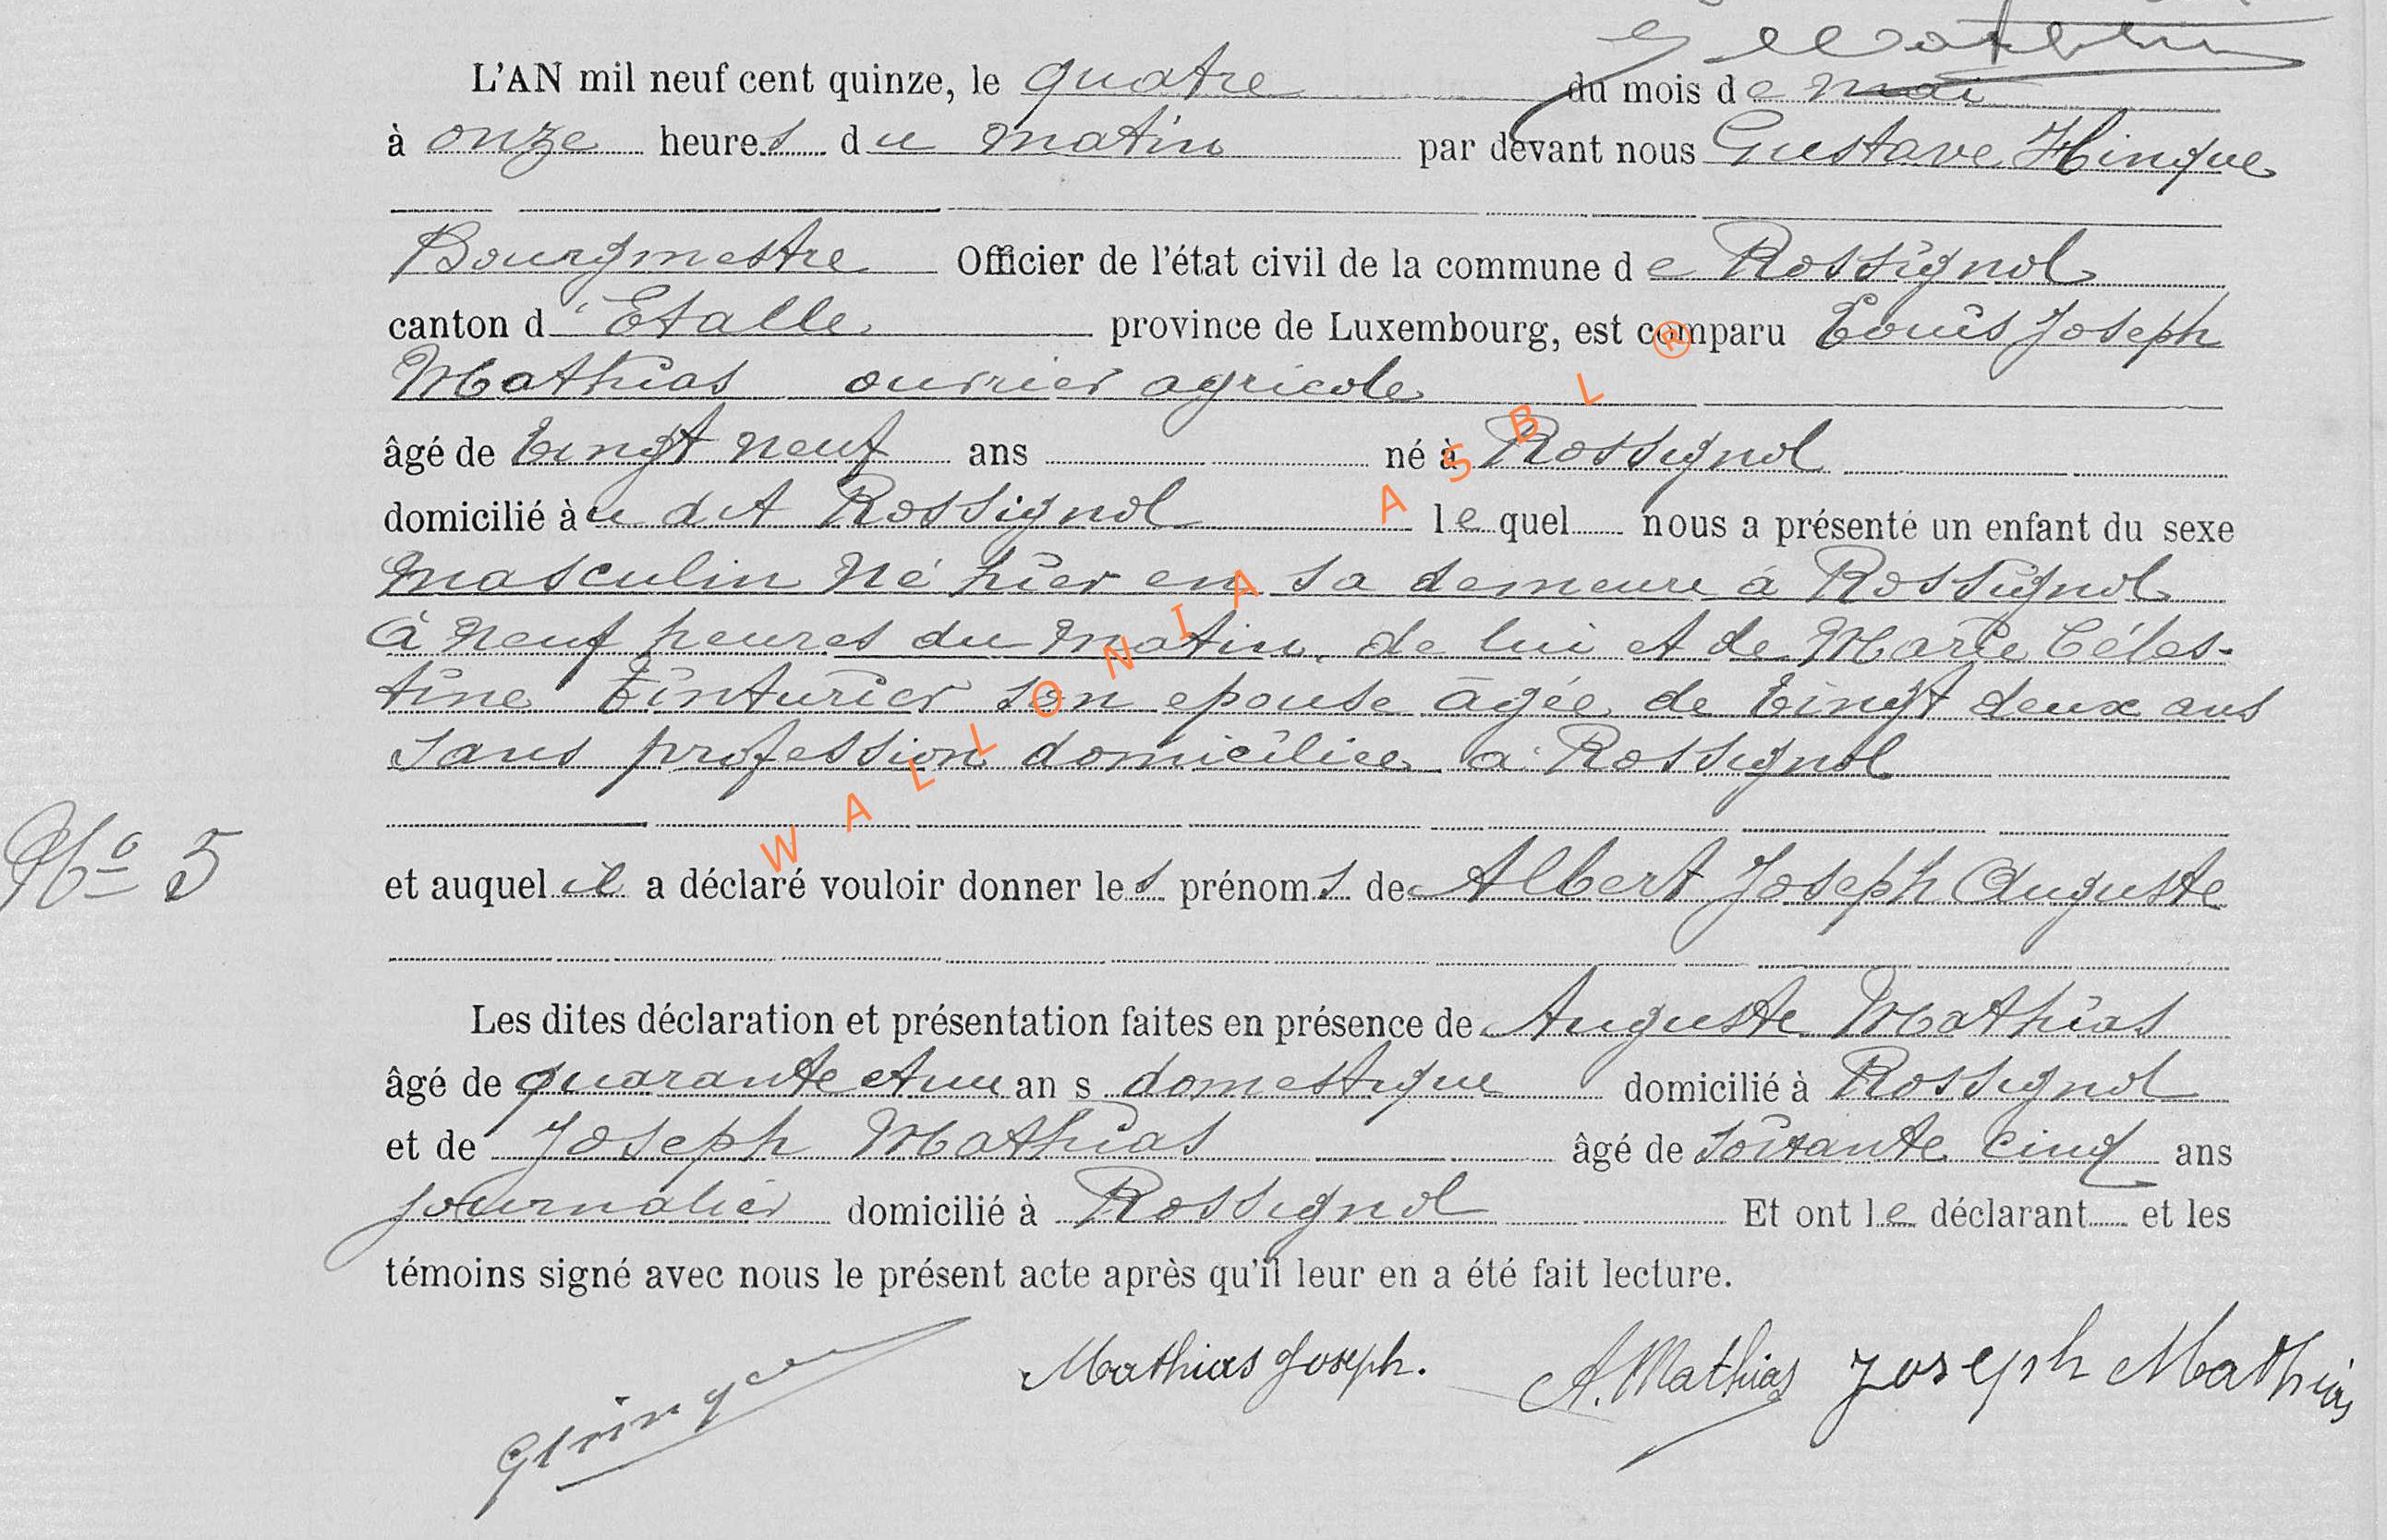 L'AN mil neuf cent quinze, le quatre du mois de mai
à onze heures du matin par devant nous Gustave Hinque
Bourgmestre Officier de l'état civil de la commune de Rossignol
canton d'Etalle province de Luxembourg, est comparu Louis Joseph
Mathias ouvrier agricole
âgé de vingt neuf ans né à Rossignol
domicilié àu dit Rossignol lequel nous a présenté un enfant du sexe
masculin né hier en sa demeure à Rossignol
à neuf heures du matin de lui et de Marie Céles-
tine Tinturier son epouse âgée de vingt deux ans
sans profession domiciliée a Rossignol
No 5
et auquel il a déclaré vouloir donner les prénoms de Albert Joseph Auguste
Les dites déclaration et présentation faites en présence de Auguste Mathias
âgé de quarante et un ans domestique domicilié à Rossignol
et de Joseph Mathias âgé de soixante cinq ans
journalier domicilié à Rossignol Et ont le déclarant et les
témoins signé avec nous le présent acte après qu'il leur en a été fait lecture.
GHinque Mathias Joseph. A. Mathias Joseph Mathias
WALLONIA ASBL ®